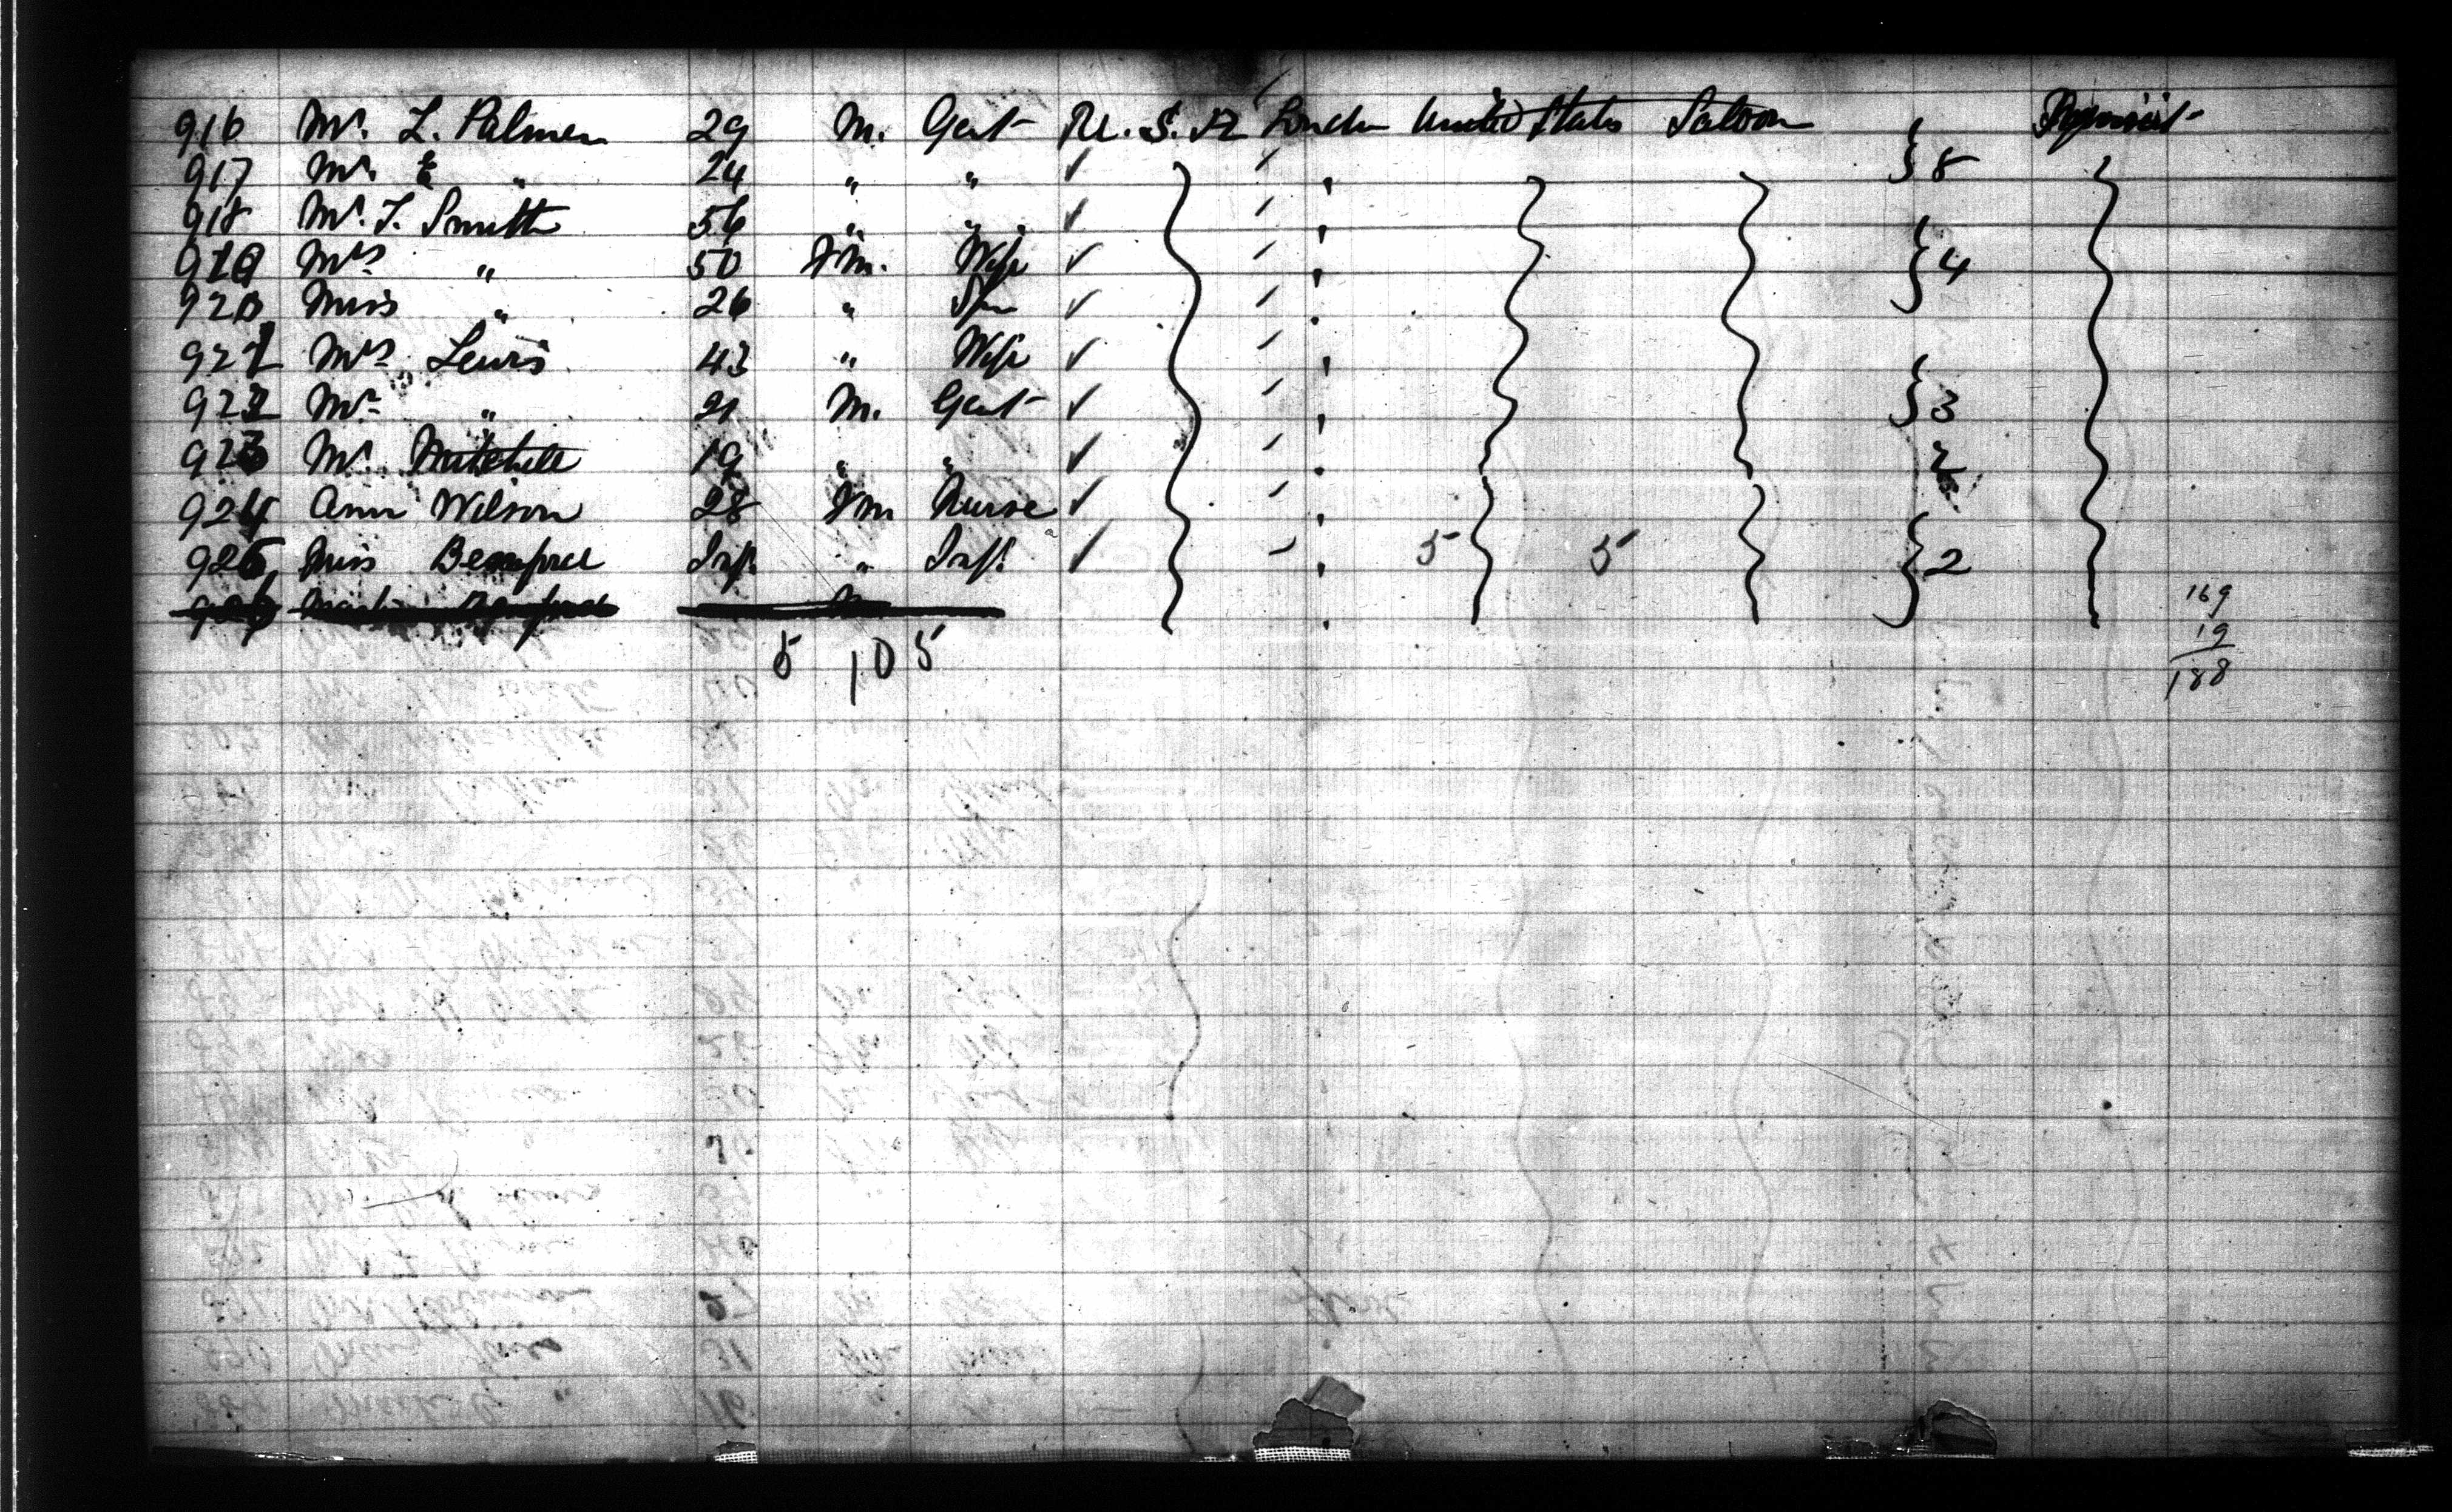 916 Mr. L. Palmer 29 M. Gent U. S. A London United States Saloon } 8
917 Mr. E " 24 " " ✓ }8
918 Mr. J. Smith 56 " " ✓
919 Mrs " 50 Fm. Wife ✓ } 4
920 Miss " 26 " Spr ✓
921 Mrs Lewis 43 " Wife ✓
922 Mr " 21 M. Gent ✓ } 3
923 Mr. Mitchell 19 " " ✓ 2
924 Ann Wilson 28 Fm Nurse ✓
925 Miss Inf. " Inf. ✓ 5 5 } 2
169
19
5 10 5 188